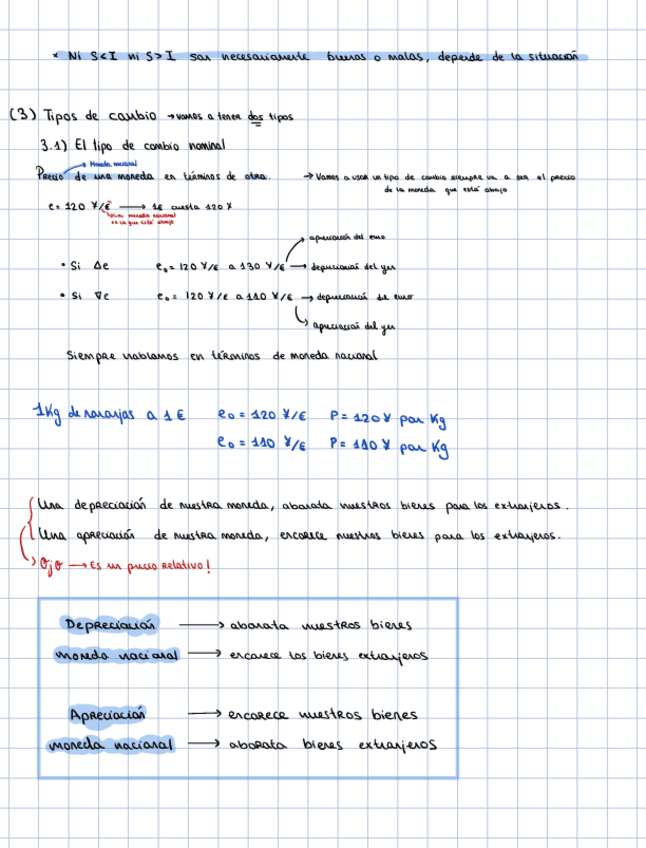 * Ni S<I ni S>I son necesariamente buenas o malas, depende de la situación
(3) Tipos de cambio → vamos a tener dos tipos
3.1) El tipo de cambio nominal
Moneda nacional
Precio de una moneda en términos de otra. → Vamos a usar un tipo de cambio siempre va a ser el precio
de la moneda que está abajo
e = 120 ¥/€ → 1€ cuesta 120 ¥
moneda nacional
es la que está abajo
apreciación del euro
• Si Δe e₀ = 120 ¥/€ a 130 ¥/€ → depreciación del yen
• Si ∇e e₀ = 120 ¥/€ a 110 ¥/€ → depreciación de euro
apreciación del yen
Siempre hablamos en términos de moneda nacional
1Kg de naranjas a 1 € e₀ = 120 ¥/€ P = 120 ¥ por Kg
e₀ = 110 ¥/€ P = 110 ¥ por Kg
Una depreciación de nuestra moneda, abarata nuestros bienes para los extranjeros.
Una apreciación de nuestra moneda, encarece nuestros bienes para los extranjeros.
Ojo → Es un precio Relativo!
Depreciación → abarata nuestros bienes
moneda nacional → encarece los bienes extranjeros
Apreciación → encarece nuestros bienes
moneda nacional → abarata bienes extranjeros